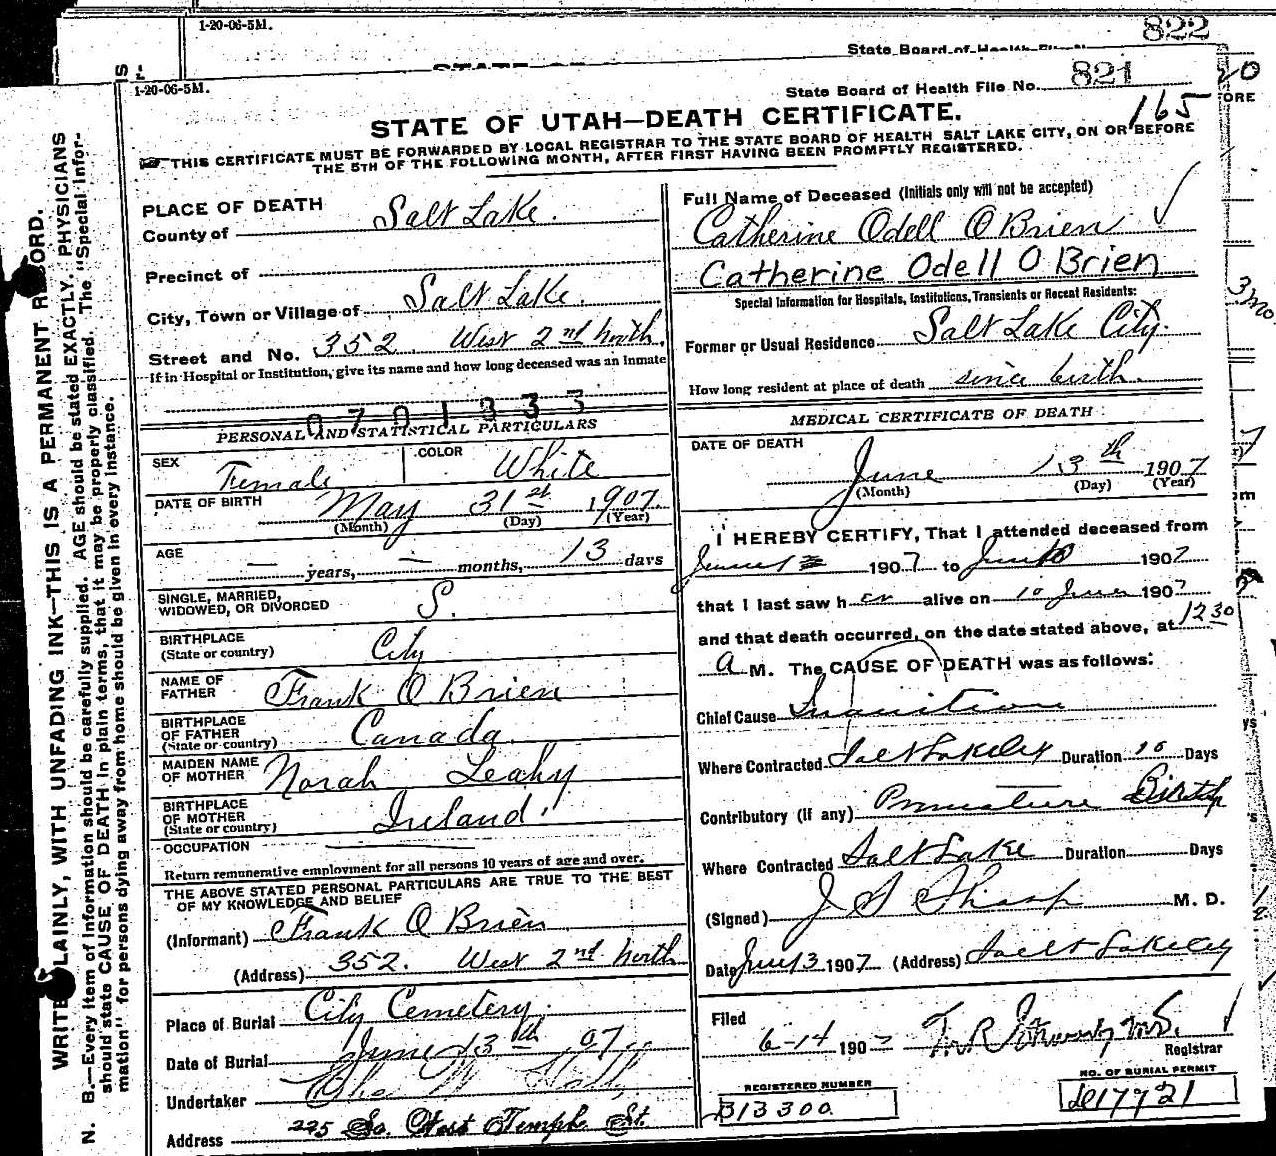 1-20-06-5M.
822
State Board of Health File No.
1-20-06-5M.
State Board of Health File No. 821
165
STATE OF UTAH—DEATH CERTIFICATE.
THIS CERTIFICATE MUST BE FORWARDED BY LOCAL REGISTRAR TO THE STATE BOARD OF HEALTH SALT LAKE CITY, ON OR BEFORE
THE 5TH OF THE FOLLOWING MONTH, AFTER FIRST HAVING BEEN PROMPTLY REGISTERED.
WRITE PLAINLY, WITH UNFADING INK—THIS IS A PERMANENT RECORD.
N. B.—Every item of information should be carefully supplied. AGE should be stated EXACTLY. PHYSICIANS
should state CAUSE OF DEATH in plain terms, that it may be properly classified. The "Special Infor-
mation" for persons dying away from home should be given in every instance.
PLACE OF DEATH
County of Salt Lake.
Precinct of
City, Town or Village of Salt Lake.
Street and No. 352. West 2nd North.
If in Hospital or Institution, give its name and how long deceased was an inmate
0701333
PERSONAL AND STATISTICAL PARTICULARS
SEX Female COLOR White
DATE OF BIRTH May 31st 1907.
(Month) (Day) (Year)
AGE — years, — months, 13 days
SINGLE, MARRIED,
WIDOWED, OR DIVORCED S.
BIRTHPLACE
(State or country) City
NAME OF
FATHER Frank O Brien
BIRTHPLACE
OF FATHER
(State or country) Canada.
MAIDEN NAME
OF MOTHER Norah Leahy
BIRTHPLACE
OF MOTHER
(State or country) Ireland
OCCUPATION
Return remunerative employment for all persons 10 years of age and over.
THE ABOVE STATED PERSONAL PARTICULARS ARE TRUE TO THE BEST
OF MY KNOWLEDGE AND BELIEF
(Informant) Frank O Brien
(Address) 352. West 2nd North
Place of Burial City Cemetery.
Date of Burial June 13th 07
Undertaker
Address 225 So. West Temple St.
Full Name of Deceased (Initials only will not be accepted)
Catherine Odell O Brien
Catherine Odell O Brien
Special Information for Hospitals, Institutions, Transients or Recent Residents:
Former or Usual Residence Salt Lake City.
How long resident at place of death since birth.
MEDICAL CERTIFICATE OF DEATH
DATE OF DEATH
June 13th 1907
(Month) (Day) (Year)
I HEREBY CERTIFY, That I attended deceased from
June 1907 to June 10 1907
that I last saw h er alive on 10 June 1907
and that death occurred, on the date stated above, at 12 30
a M. The CAUSE OF DEATH was as follows:
Chief Cause Inanition
Where Contracted Salt Lake City Duration 10 Days
Contributory (if any) Premature Birth
Where Contracted Salt Lake Duration Days
(Signed) J S Sharp M. D.
Date June 13 1907 (Address) Salt Lake City
Filed
6-14 1907
Registrar
REGISTERED NUMBER
B13300
NO. OF BURIAL PERMIT
17721